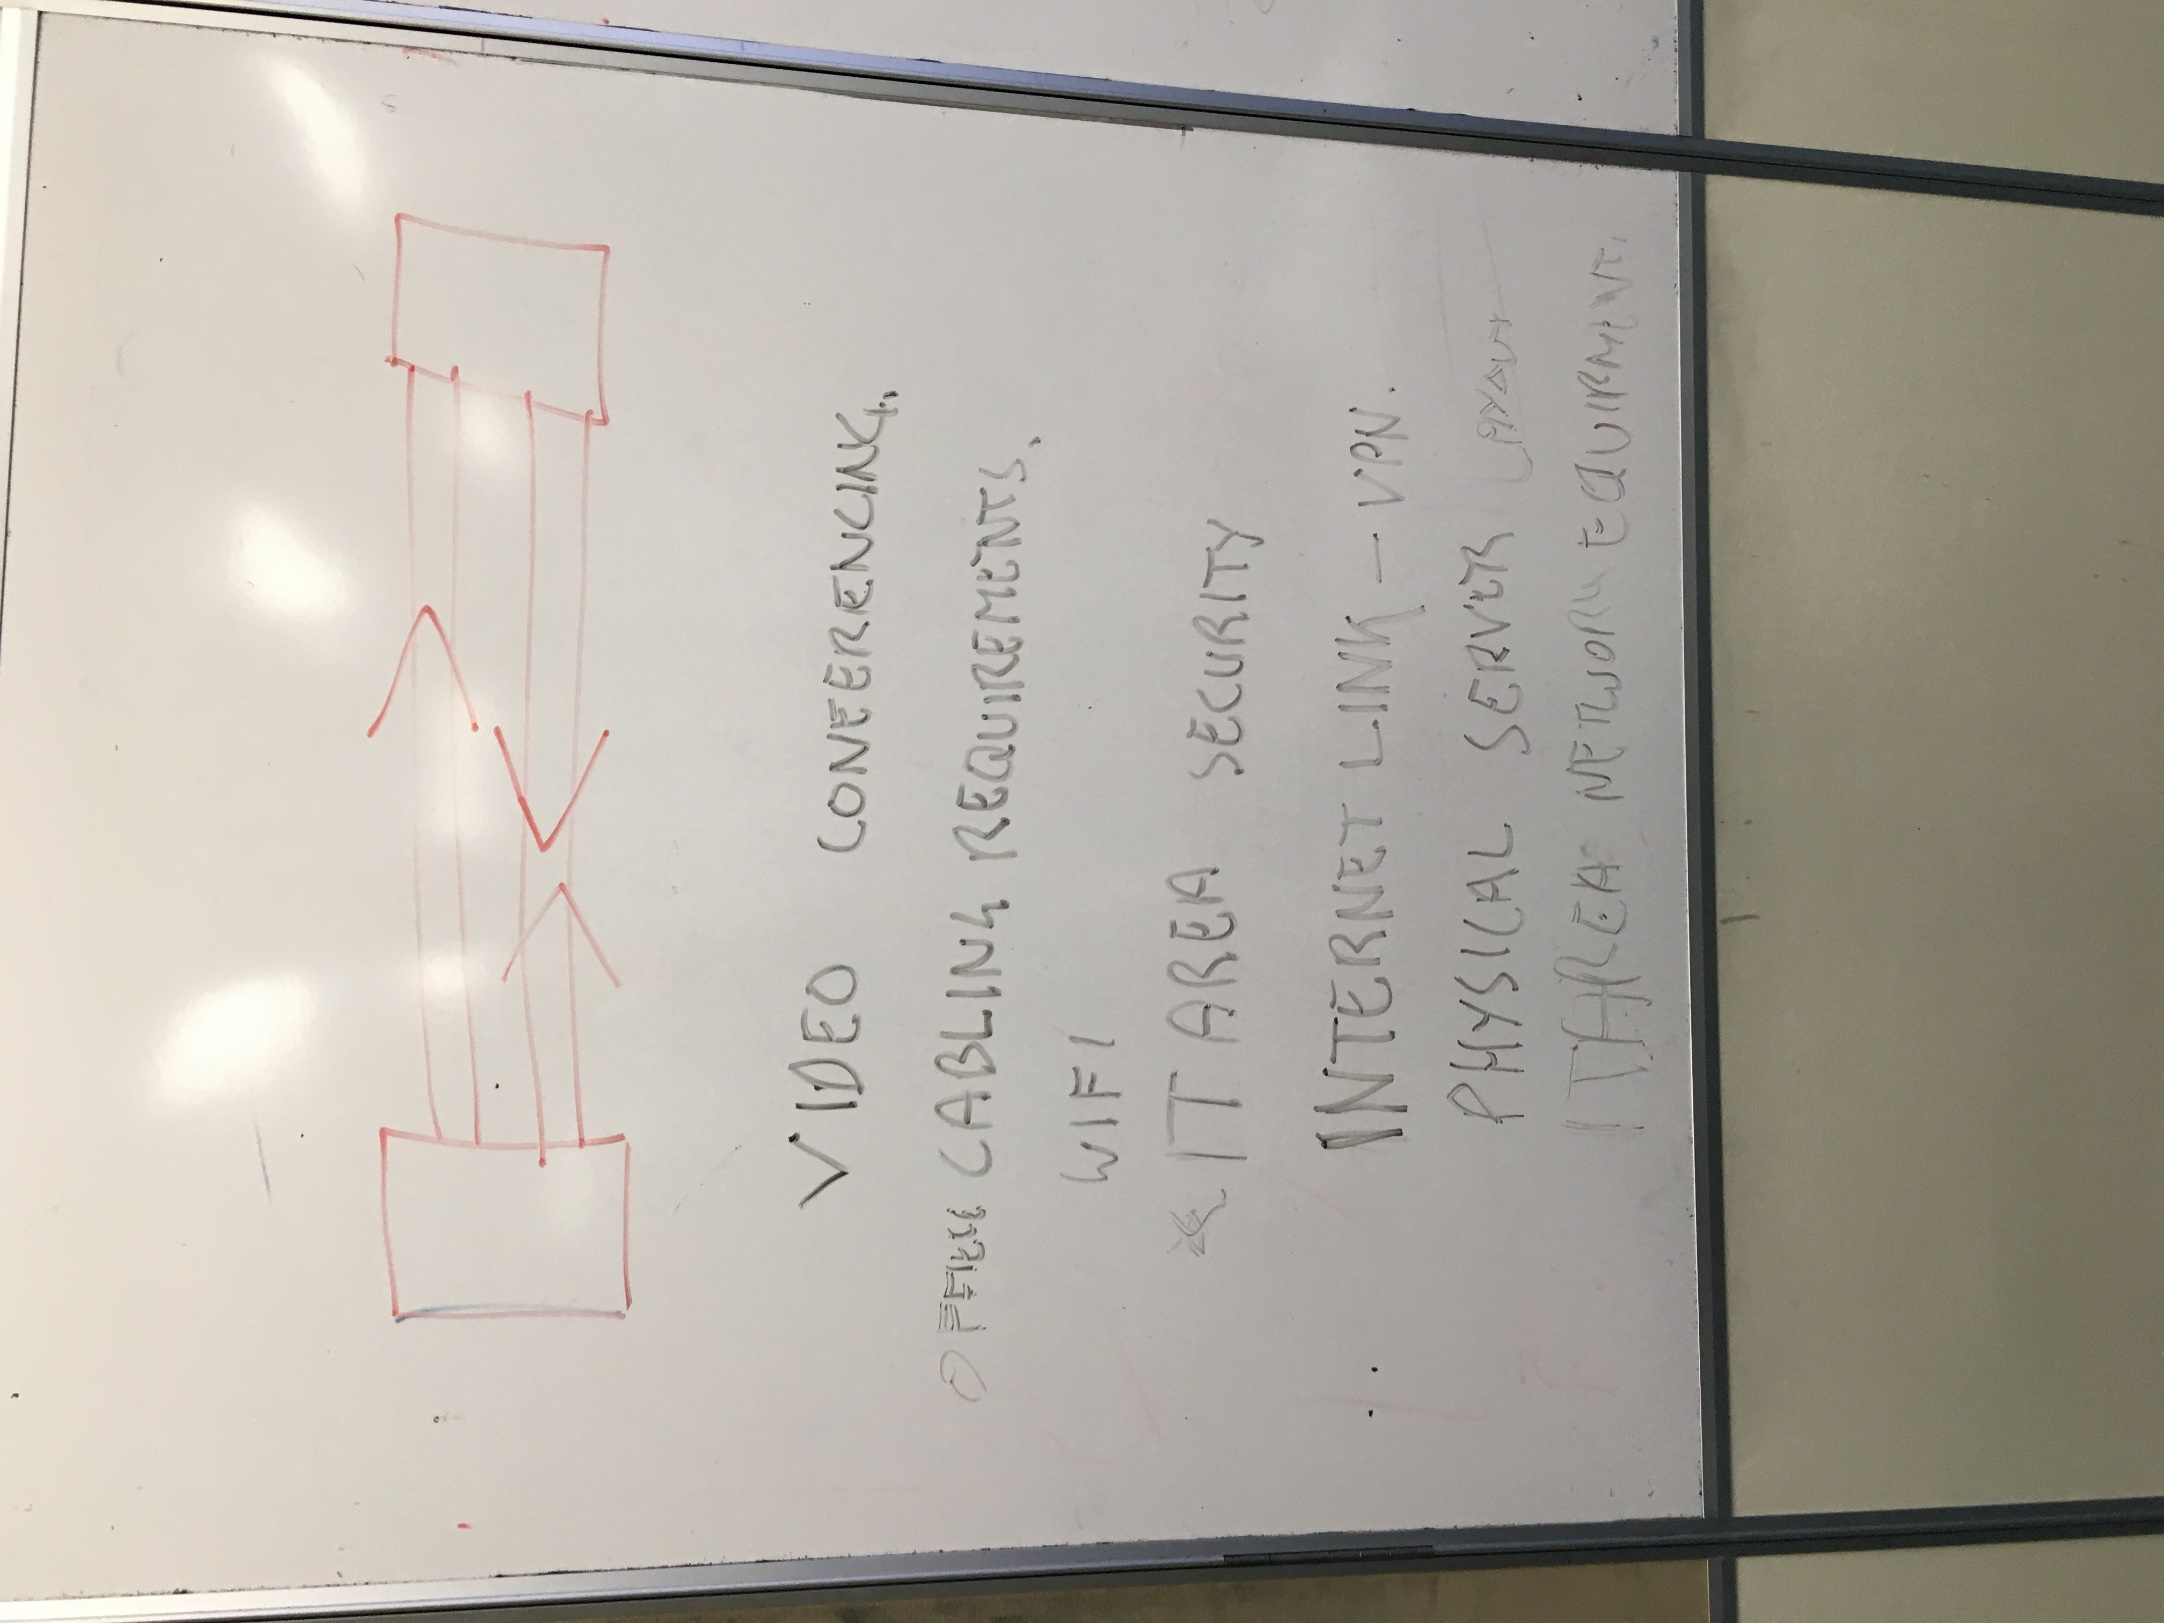 VIDEO CONFERENCING.
OFFICE CABLING REQUIREMENTS.
WIFI
* IT AREA SECURITY
INTERNET LINK - VPN.
PHYSICAL SERVER LAYOUT
IT AREA NETWORK EQUIPMENT.